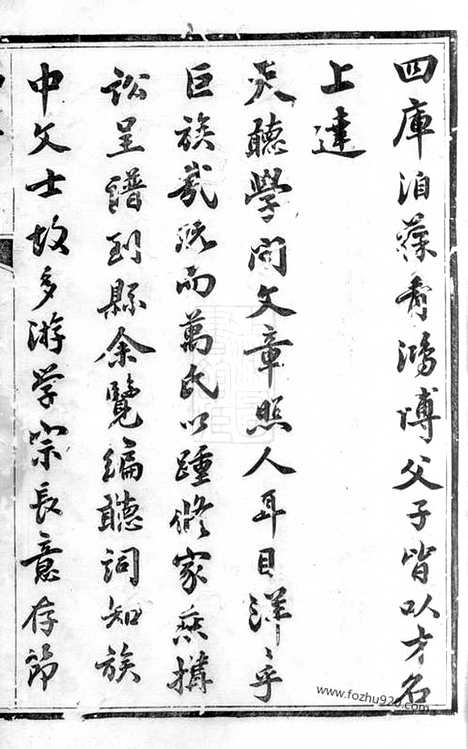 四庫洎藻青鴻博父子皆以才名
上達
天聽學問文章照人耳目洋〻乎
巨族哉既而萬氏以踵修家乘搆
訟呈譜到縣余覽編聽詞知族
中文士故多游学宗長意存節
www.fozhu920.com